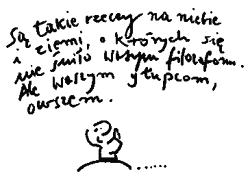 Są takie rzeczy na niebie
i ziemi, o których się
nie śniło waszym filozofom.
Ale waszym głupcom,
owszem.